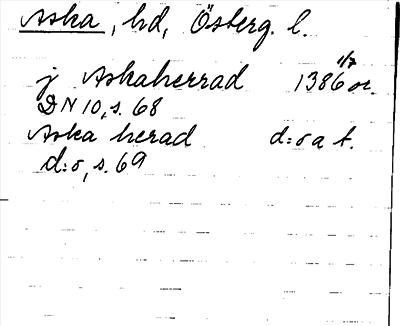 Aska, hd, Österg. l.
j Askaherrad 1386 1/7 or.
DN 10, s. 68
Aska herad d:o a t.
d:o, s. 69